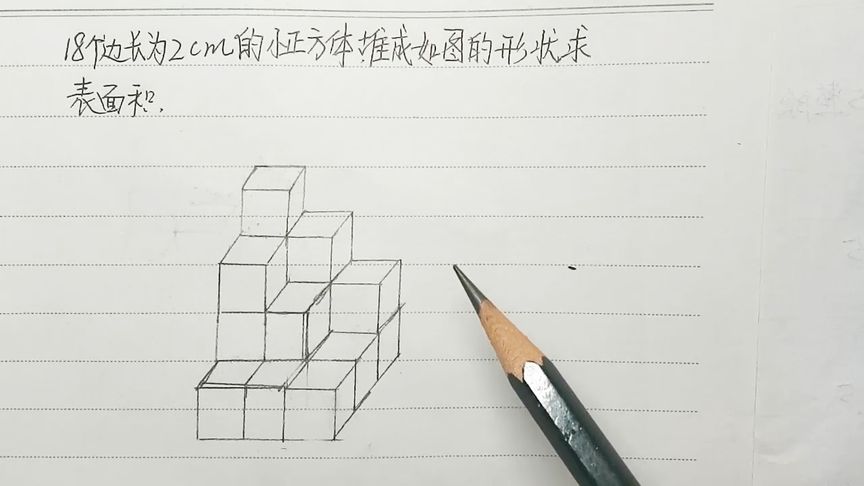 18个边长为2cm的小正方体堆成如图的形状,求
表面积.